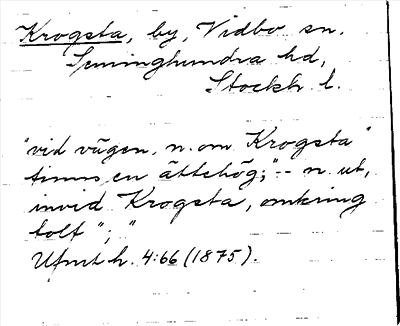 Krogsta, by, Vidbo sn.
Seminghundra hd,
Stockh. l.
"vid vägen, n. om Krogsta"
finns en ättehög; "-- n. ut,
invid Krogsta, omkring
tolf"; "
Ufmt h. 4:66 (1875).